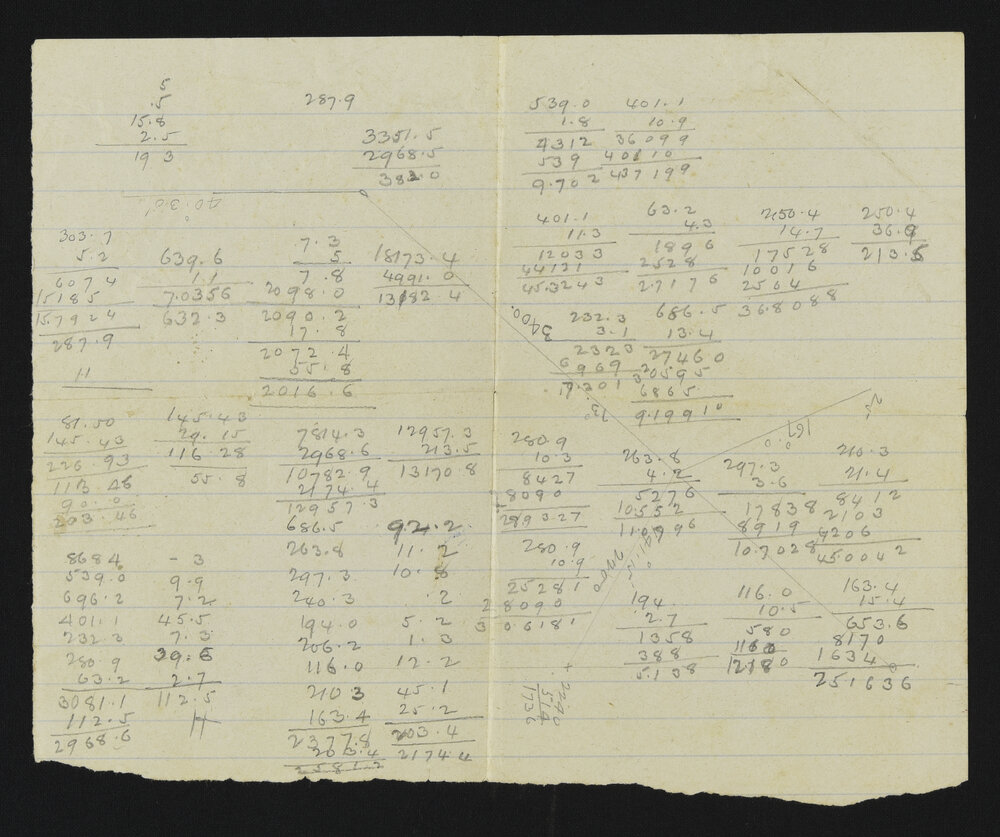 5
.5
15.8
2.5
19 3
287.9
3351.5
2968.5
382.0
40.30
303.7
5.2
6074
15185
157924
287.9
11
639.6
1.1
7.0356
632.3
7.3
5
7.8
2098.0
2090.2
17.8
2072.4
55.8
2016.6
18173.4
4991.0
13182.4
81.50
145.43
226.93
113.46
90.0
203.46
145.43
29.15
116.28
55.8
7814.3
2968.6
10782.9
2174.4
12957.3
12957.3
213.5
13170.8
868.4
539.0
696.2
401.1
232.3
280.9
63.2
3081.1
112.5
2968.6
- 3
9.9
7.2
45.5
7.3
39.6
2.7
112.5
686.5
263.8
297.3
240.3
194.0
206.2
116.0
210 3
163.4
2377.8
203.4
2581.2
92.2
11.2
10.8
.2
5.2
1.3
12.2
45.1
25.2
203.4
2174.4
539.0
1.8
4312
539
9.702
401.1
10.9
36099
40110
437199
401.1
11.3
12033
44121
45.3243
63.2
4.3
1896
2528
27176
250.4
14.7
17528
10016
2504
36.8088
250.4
36.9
213.5
3400
232.3
3.1
2323
6969
7.201
686.5
13.4
27460
20595
6865
9.19910
73
25
167
280.9
10.3
8427
8090
2893 27
263.8
4.2
5276
10552
110796
297.3
3.6
17838
8919
10.7028
210.3
21.4
8412
2103
4206
450042
280.9
10.9
25281
28090
306181
194.
2.7
1358
388
5.138
116.0
10.5
580
1160
12180
163.4
15.4
653.6
8170
1634
251636
2290
514
1736